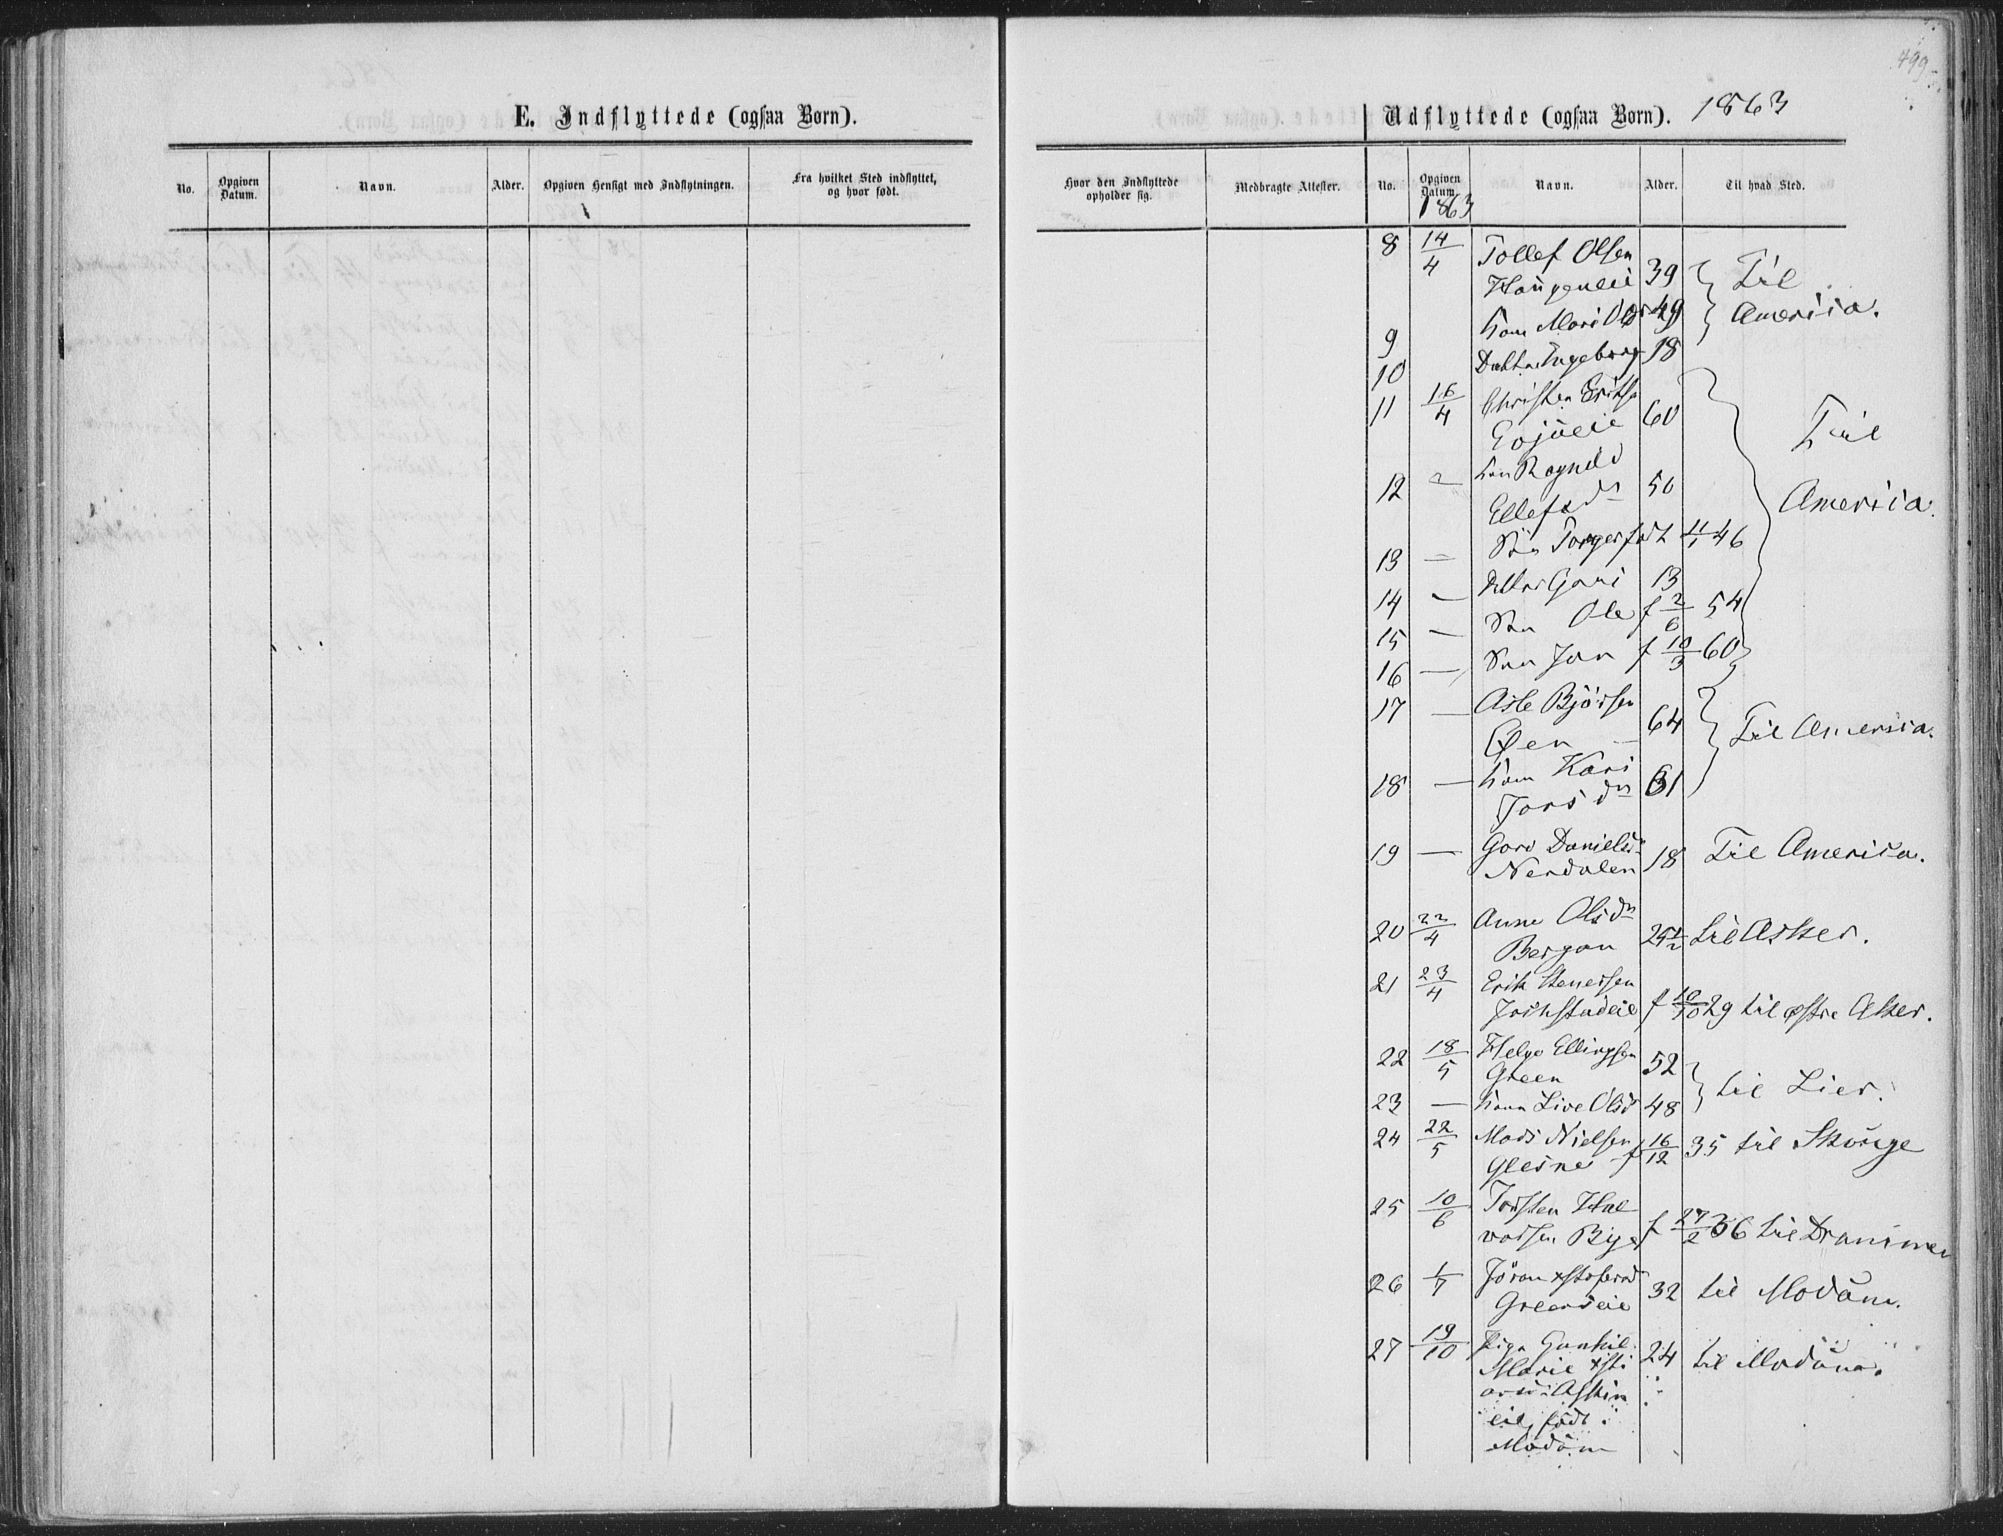 499
E. Indflyttede (ogsaa Børn).
No.
Opgiven Datum.
Navn.
Alder.
Opgiven Hensigt med Indflytningen.
Fra hvilket Sted indflyttet, og hvor født.
Udflyttede (ogsaa Børn). 1863
Hvor den Indflyttede opholder sig.
Medbragte Attester.
No.
Opgiven Datum.
Navn.
Alder.
Til hvad Sted.
1863
8 14/4 Tollef Olsen
Haugeneie 39 } Til
9 Kone Mari Olsd 49 America.
10 Datter Ingeborg 18
11 16/4 Christen Eriks
60 Til
12 - Kone Ragnild
Ellefsdr 50 America.
13 - Søn Torger født 11/1 46
14 - Datter Gori 13
15 - Søn Ole f 2/6 54
16 - Søn Jon f 10/3 60
17 - Asle Bjørsen
Øen - 64 } Til America.
18 - Kone Kari
Jorsdr 61
19 - Goro Danielsd
Nerdalen 18 Til America.
20 22/4 Anne Olsdr
Bergan 25 1/2 til Asker.
21 23/4 Erik Stenersen
f 10/10 29 til østre Aker.
22 18/5 Helge Ellingsen
Green 52 } til Lier.
23 - Kone Live Olsd 48
24 22/5 Mads Nielsen
Glesne f 16/12 35 til Skouge
25 10/6 Torsten Hal
vorsen Bye f 27/2 36 til Drammen
26 1/7 Jöran Xstofersd
Greenseie 32 til Modum.
27 19/10 Pige Gunhil
Marie Xsti
24 til Modum.
eie, født i
Modum